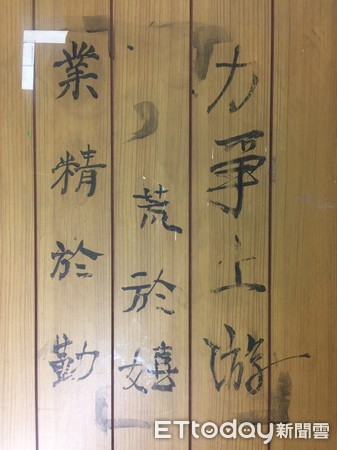 業精於勤
荒於嬉
力爭上游
ETtoday新聞雲